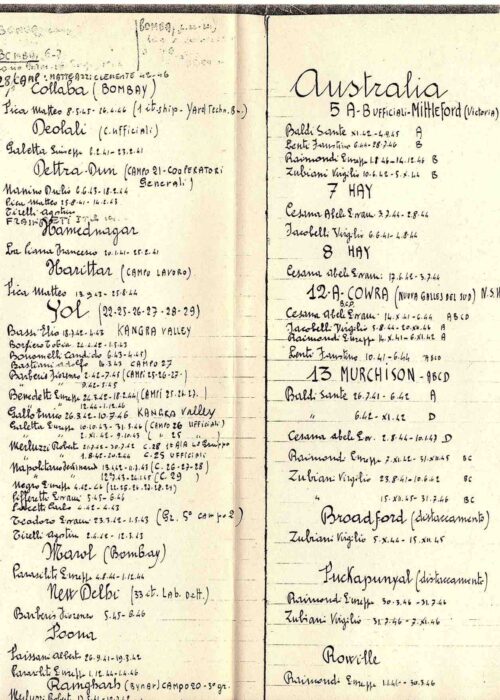 BOMBAY 6-7
28 CAMP. MATTEAZZI CLEMENTE 42-46
Collaba (BOMBAY)
Pica Matteo 8.5.45-26.4.46 (1st ship-Yard Techn. Bn.)
Deolali (C. ufficiali)
Galetta Giuseppe 6.2.41-23.2.41
Dettra-Dun (CAMPO 21-COOPERATORI
Generali)
Manino Duilio 6.6.43-18.2.44
Pica Matteo 15.8.41-14.2.43
Tirelli Agostin
Hamednagar
La Cima Francesco 20.1.41-25.2.41
Harittar (CAMPO LAVORO)
Pica Matteo 13.9.43-25.8.44
Yol (22-25-26-27-28-29)
Bassi Elio 18.7.42-4.43 KANGRA VALLEY
Borfiero Tobia 24.4.42-1.5.43
Bonomelli Candido 6.43-4.45)
Bastiani Adolfo 4.43 CAMPO 27
Barberis Fiorenzo 2.42-7.45 (CAMPI 25-26-27-)
" 9.42-5.45
Benedetti Giuseppe 24.3.42-18.2.44 (CAMPI 25.26.27.)
" 12.44-1.12.45
Gallo Enrico 26.3.42-10.7.46 KANGRA Valley
Galetta Giuseppe 10.10.43-31.5.46 (CAMPO 26 Ufficiali)
" " 2.XI.42-9.10.43 ( " 25 "
Merluzzi Robert.
" " 1.8.42-20.2.44 C. 25 UFFICIALI
Napolitano 13.4.42-11.9.43 (C. 26-27-28)
" 12.9.43-24.1.45 (C. 29)
Negro Giuseppe 4.42-46 (22.25.26.27.28.29)
Pifferetti Ermanno 3.45-6.46
Porcetti Carlo 4.42-4.43
Teodoro Ermanno 23.3.42-1.5.43 (Gr. 5° campo 2)
Tirelli Agostin 2.4.42-12.3.43
Marol (Bombay)
Parasiliti Giuseppe 4.8.44-1.12.44
New Delhi (33 it. Lab. Dett.)
Barberis Fiorenzo 5.45-6.46
Poona
Paissani Albert. 26.9.41-19.3.42
Parasiliti Giuseppe 1.12.44-4.46
Ramgharh (BYHAR) CAMPO 20-3° gr.
Australia
5 A-B UFFICIALI-Mittleford (Victoria)
Baldi Sante XI.42-4.9.45 A
Lenti Faustino 6.44-28.7.46 B
Raimondi Giuseppe 1.8.46-14.12.46 B
Zubiani Virgilio 10.6.42-5.X.44 B
7 HAY
Cesana Abele Erman. 3.7.44-28.44
Jacobelli Virgilio 6.6.41-4.8.44
8 HAY
Cesana Abele Erman: 17.6.42-3.7.44
12-A-COWRA (NUOVA GALLES DEL SUD) N.S.W
B.C.D.
Cesana Abele Erman: 14.X.41-6.44 A B C D
Jacobelli Virgilio 5.8.44-20.XII.46 A
Raimondi Giuseppe 14.X.41-6.XI.42 A
Lenti Faustino 10.41-6.44 ABCD
13 MURCHISON-ABCD
Baldi Sante 26.7.41-6.42 A
" 6.42-XI.42 D
Cesana Abele Er. 2.8.44-10.1.47 D
Raimondi Giuseppe 7.XI.42-31.XII.45 BC
Zubiani Virgilio 23.8.41-10.6.42 BC
" 15.XII.45-31.7.46 BC
Broadford (distaccamento)
Zubiani Virgilio 5.X.44-15.XII.45
Puckapunyal (distaccamento)
Raimondi Giuseppe 30.3.46-31.7.46
Zubiani Virgilio 31.7.46-7.XII.46
Rowille
Raimondi Giuseppe 1.1.41-30.3.46